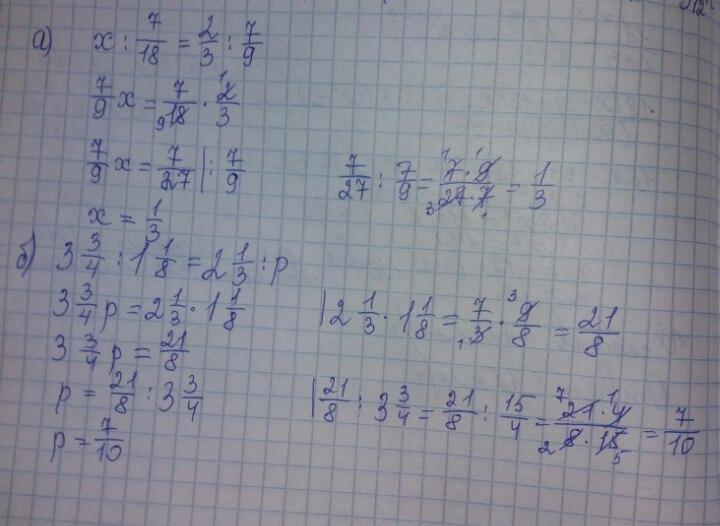 а) x : 7/18 = 2/3 : 7/9
7/9 x = 7/18 · 2/3
7/9 x = 7/27 | : 7/9
7/27 : 7/9 = 7·9/27·7 = 1/3
x = 1/3
б) 3 3/4 : 1 1/8 = 2 1/3 : p
3 3/4 p = 2 1/3 · 1 1/8
| 2 1/3 · 1 1/8 = 7/3 · 9/8 = 21/8
3 3/4 p = 21/8
p = 21/8 : 3 3/4
| 21/8 : 3 3/4 = 21/8 : 15/4 = 21·4/8·15 = 7/10
p = 7/10